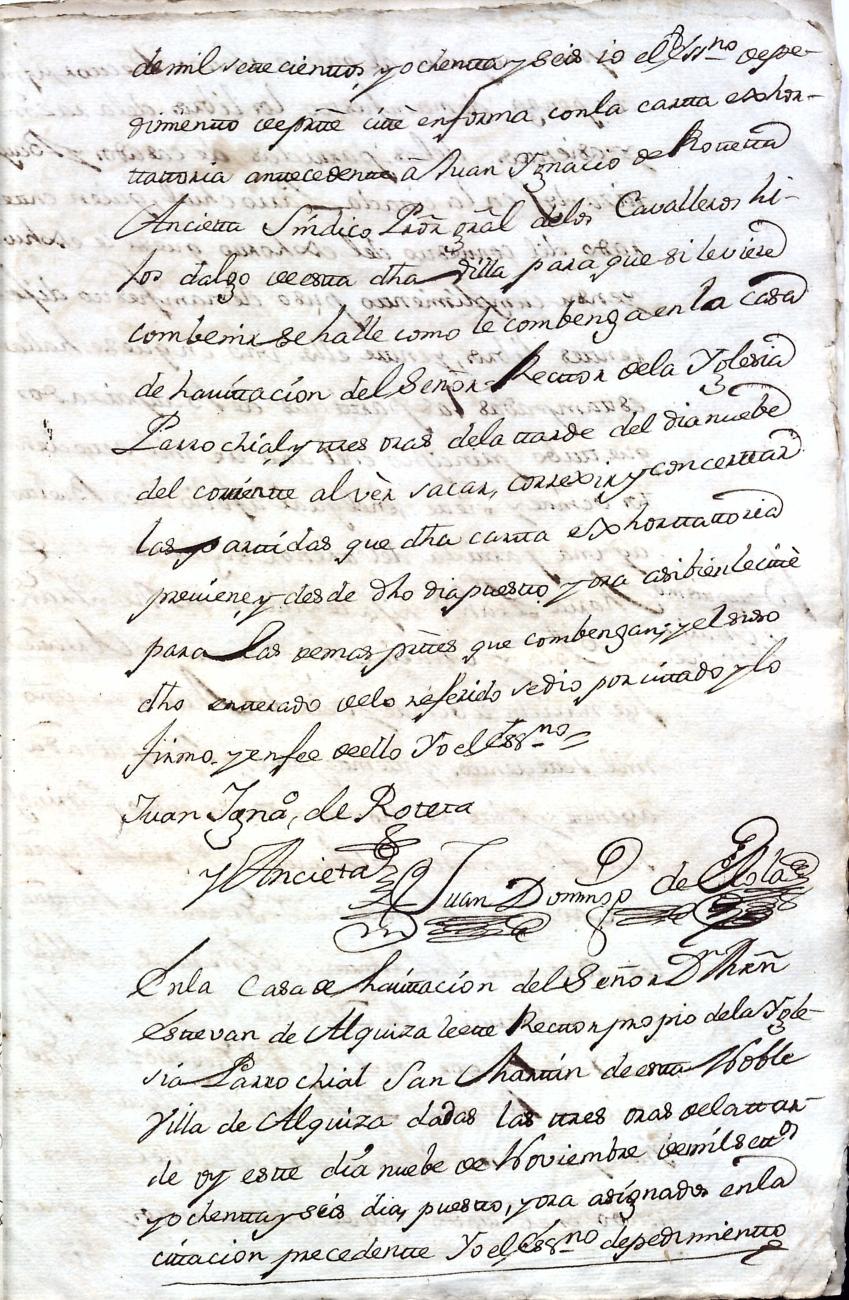 de mil settecienttos, y ochentta y seis io el Essno de pe-
dimientto de prtte citte en forma con la cartta exhor-
ttattoria anttecedentte â Juan Ygnacio de Rotetta
Ancietta Sindico Prõr grãl de los Cavalleros hi-
jos dalgo de estta dha villa para que si le viere
combenir se halle como le combenga en la casa
de havittacion del Señor Recttor de la Yglesia
Parrochial y ttres oras de la ttarde del dia nuebe
del corrientte al vèr sacar, correxir y concerttar
las parttidas que dha cartta exhorttattoria
previene, y desde dho dia puestto, y ora asi bien le cittè
para las demas prttes que combengan; y el suso
dho entterado de lo referido se dio por cittado y lo
firmo, y en fee de ello Yo el Essno =
Juan Ignaº, de Roteta
y Ancieta
Juan Domingo de
En la Casa de havittacion del Señor Dn Mrñ
Esttevan de Alquiza Recttor propio de la Ygle-
sia Parrochial San Marttin de estta Noble
Villa de Alquiza dadas las ttres oras de la ttar-
de oy estte dia nuebe de Noviembre de mil settos
y ochentta y seis dia, puestto, y ora asignados en la
cittacion precedentte Yo el Essno de pedimientto